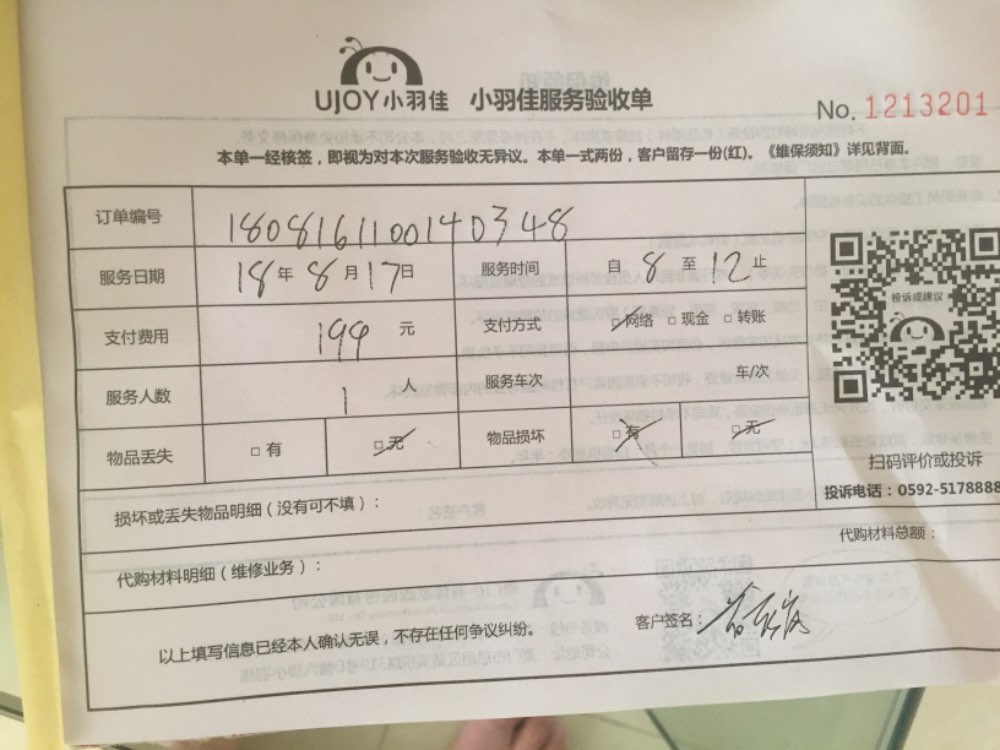 UJOY小羽佳 小羽佳服务验收单
No. 1213201
本单一经核签，即视为对本次服务验收无异议。本单一式两份，客户留存一份(红)。《维保须知》详见背面。
订单编号 180816110014 0348
服务日期 18年8月17日 服务时间 自 8 至 12 止
支付费用 199 元 支付方式 □网络 □现金 □转账
服务人数 1 人 服务车次 车/次
物品丢失 □有 □无 物品损坏 □有 □无
投诉或建议
扫码评价或投诉
投诉电话：0592-5178888
损坏或丢失物品明细（没有可不填）：
代购材料明细（维修业务）：
代购材料总额：
以上填写信息已经本人确认无误，不存在任何争议纠纷。
客户签名：